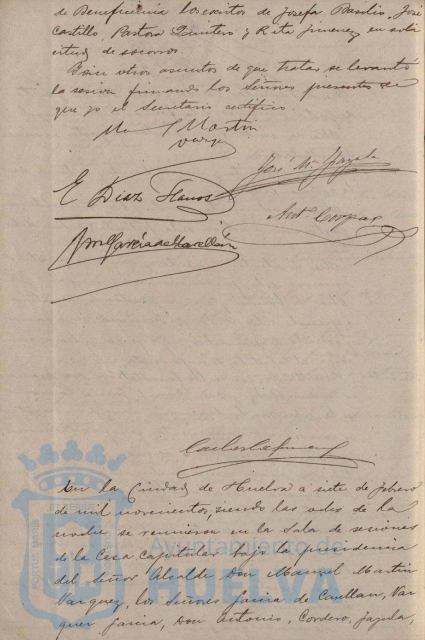 de Beneficencia los escritos de Josefa Basilio, José
Castillo, Pastora Quintero y Rita Jimenez en soli
citud de socorros.
Sin otros asuntos de que tratar se levantó
la sesion firmando los Señores presentes de
que yo el Secretario certifico.
M Martin
Vazqz
José M. Jazula
E Diaz Llanos
Ant. Corpas
García de Cavellán
En la Ciudad de Huelva a siete de febrero
de mil novecientos, siendo las ocho de la
noche se reunieron en la Sala de sesiones
de la Casa Capitular bajo la presidencia
del Señor Alcalde Don Manuel Martin
Vazquez, los Señores Garcia de Cavellan, Vaz
quez Garcia, Don Antonio, Cordero, Jazula,
PORTUS MARIS
Ayuntamiento de
HUELVA